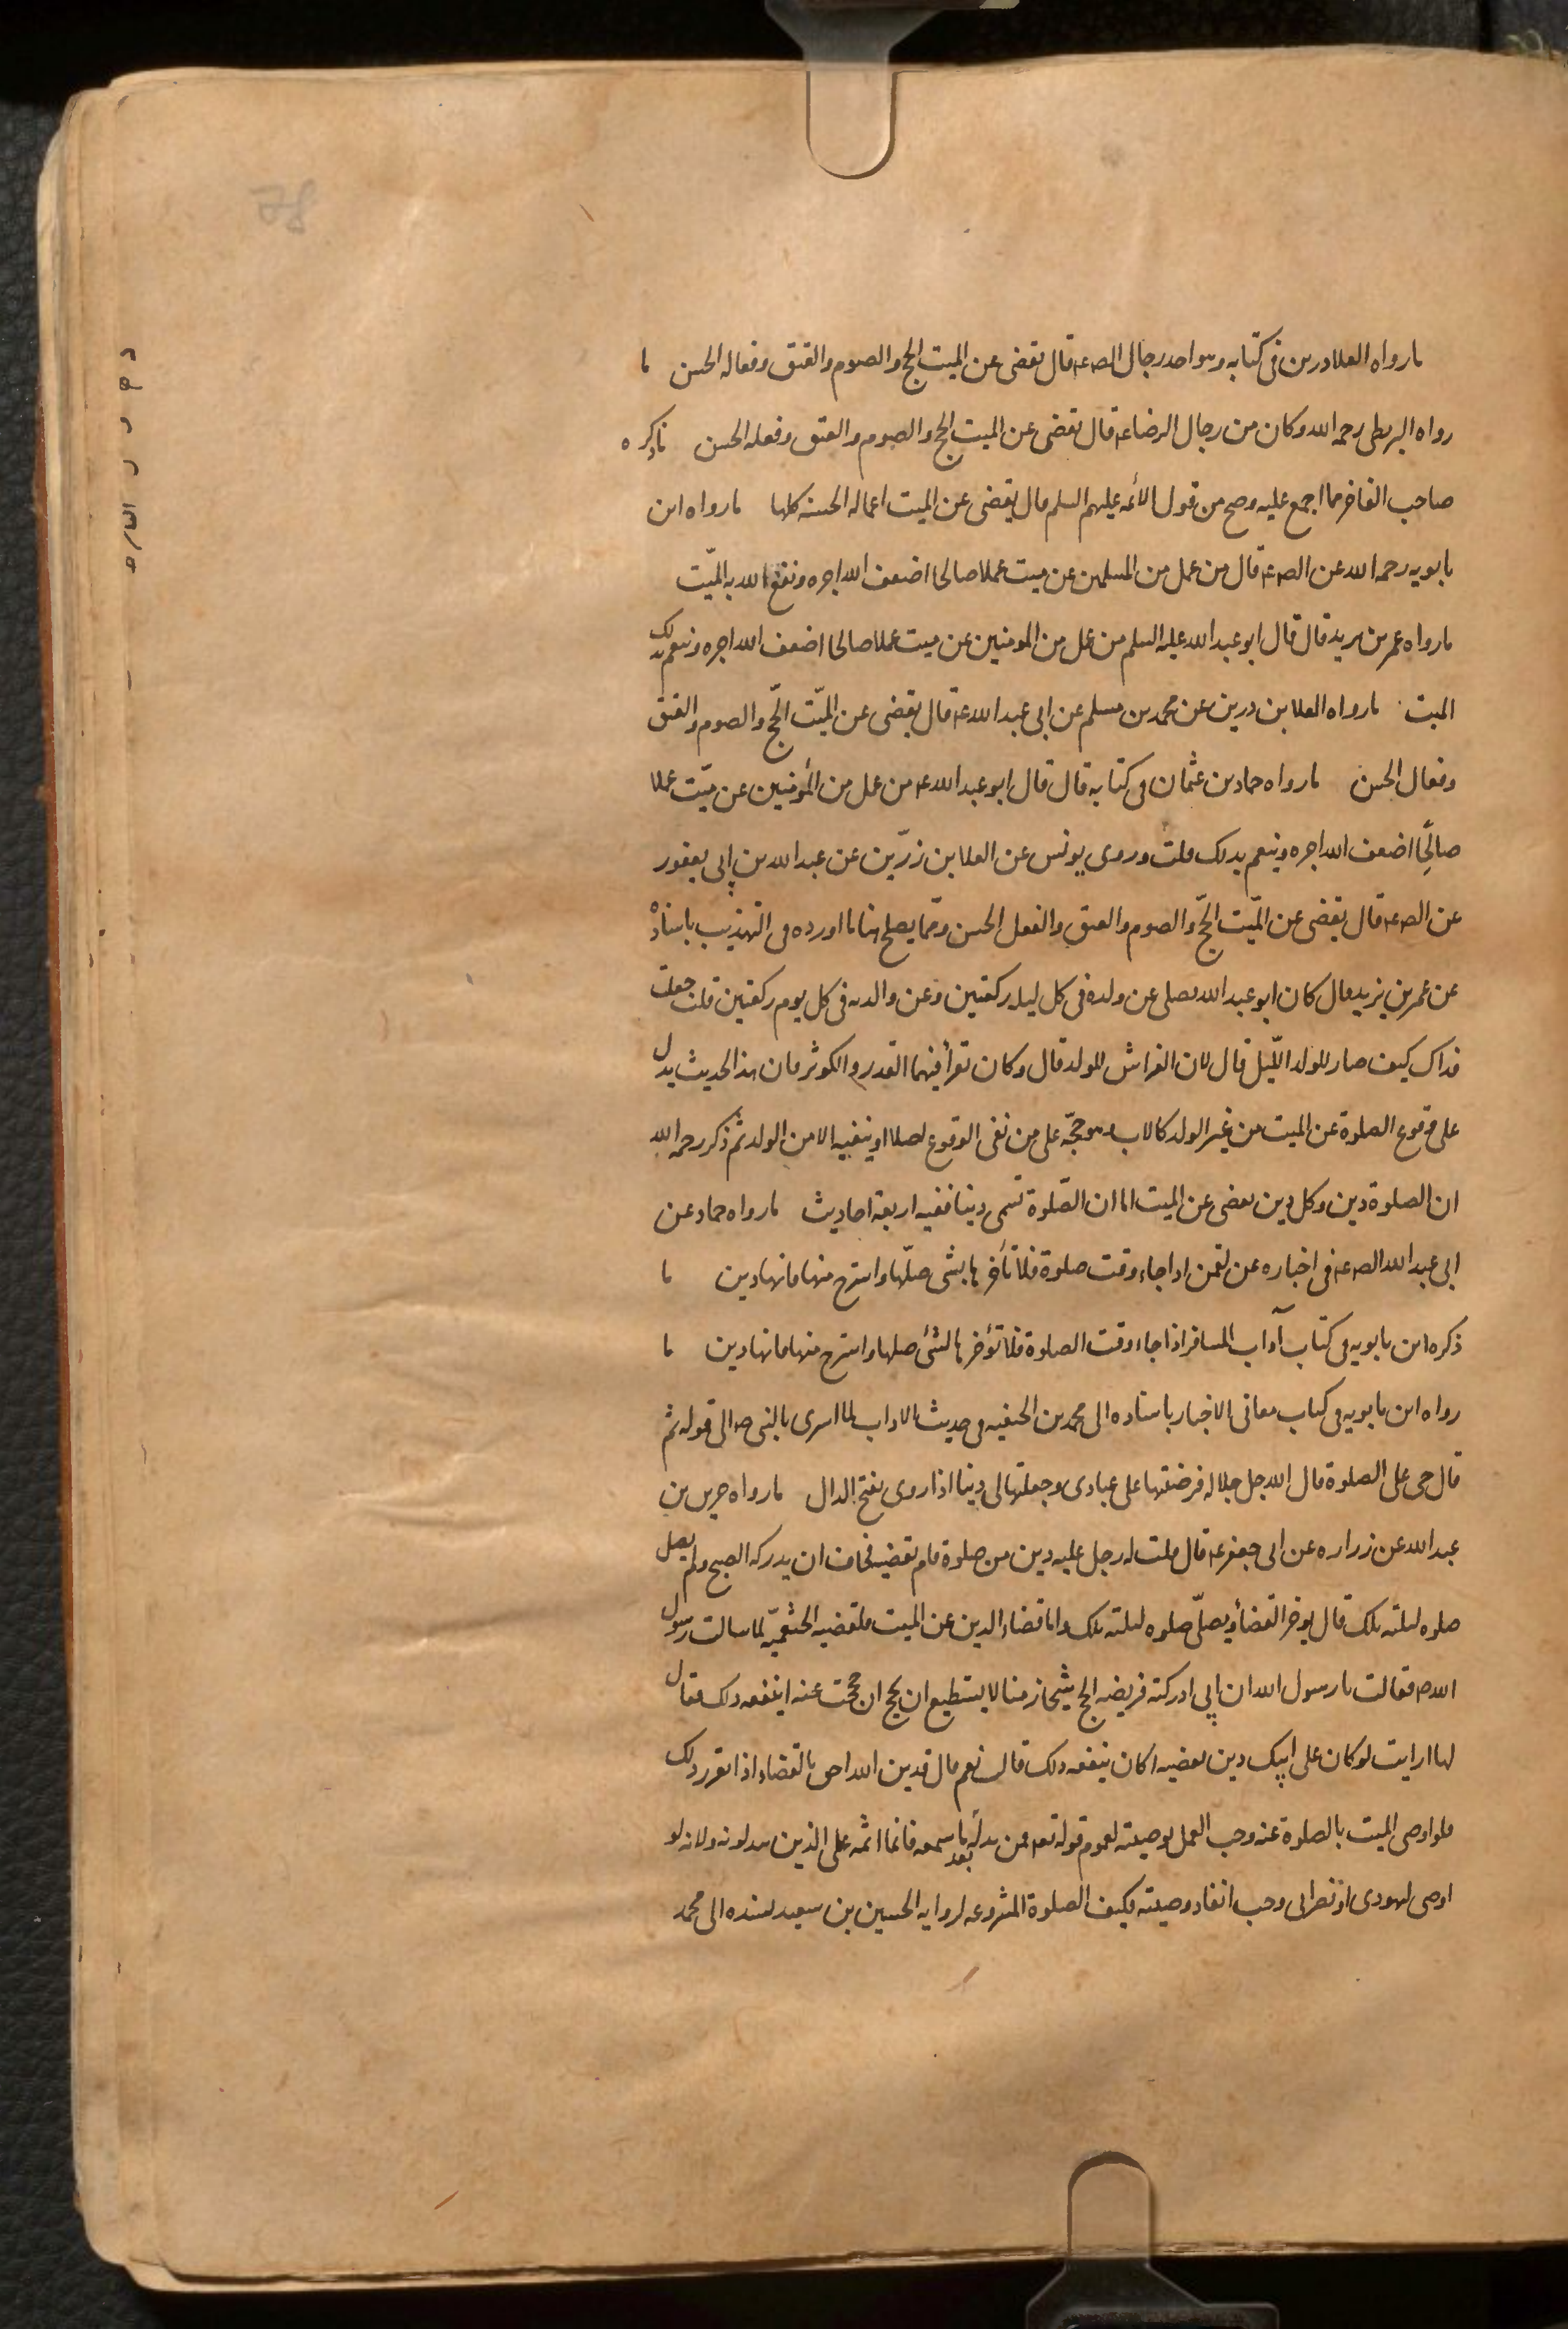 ما رواه العلا درين فى كتابه وهو احد رجال الصه عه قال يقضى عن الميت الحج والصوم والعتق وفعاله الحسن ما
رواه البزنطى رحمه الله وكان من رجال الرضا عه قال يقضى عن الميت الحج والصوم والعتق وفعله الحسن ما ذكره
صاحب الفاخر مما اجمع عليه وصح من قول الأئمه عليهم السلم قال يقضى عن الميت اعماله الحسنه كلها ما رواه ابن
بابويه رحمه الله عن الصه عه قال من عمل من المسلمين عن ميت عملا صالحا اضعف الله اجره ونفع الله به الميّت
ما رواه عمر بن يزيد قال قال ابو عبد الله عليه السلم من عمل من المومنين عن ميت عملا صالحا اضعف الله اجره وينعم بذلك
الميت ما رواه العلا بن درين عن محمد بن مسلم عن ابى عبد الله عه قال يقضى عن الميّت الحّج والصوم والعتق
وفعال الحسن ما رواه حماد بن عثمان فى كتابه قال قال ابو عبد الله عه من عمل من المؤمنين عن ميّت عملا
صالحًا اضعف الله اجره وينعم بذلك ملت وروى يونس عن العلا بن زرّين عن عبد الله بن ابى يعفور
عن الصه عه قال يقضى عن الميّت الحجّ والصوم والعتق والفعل الحسن وممّا يصلح هنا ما اورده فى التهذيب باسناده
عن عمر بن يزيد قال كان ابو عبد الله يصلى عن ولده فى كل ليله ركعتين وعن والده فى كل يوم ركعتين قلت جعلت
فداك كيف صار للولد اللّيل قال لان الفراش للولد قال وكان تقرأ فيهما القدر والكوثر فان هذا الحديث يدل
على وقوع الصلوة عن الميت من غير الولد كالاب وهو حجّه على من نفى الوقوع اصلا او ينفيه الا من الولد ثم ذكر رحمه الله
ان الصلوة دين وكل دين يقضى عن الميت اما ان الصّلوة تسمى دينا ففيه اربعة احاديث ما رواه حماد عن
ابى عبد الله الصه عه فى اخباره عن لقمن اذا جاء وقت صلوة فلا تأخرها بشى صلّها واسترح منها فانها دين ما
ذكره ابن بابويه فى كتاب آداب المسافر اذا جاء وقت الصلوة فلا تؤخرها لشئ صلها واسترح منها فانها دين ما
رواه ابن بابويه فى كتاب معانى الاخبار باسناده الى محمد بن الحنفيه فى حديث الاداب لما اسرى بالنبى صه الى قوله ثم
قال حى على الصلوة قال الله جل جلاله فرضتها على عبادى وجعلتها لى دينا اذا روى بفتح الدال ما رواه حريز بن
عبد الله عن زراره عن ابى جعفر عه قال قلت له رجل عليه دين من صلوة قام يقضيه فخاف ان يدركه الصبح ولم يصل
صلوه ليلته تلك قال يوخر القضأ ويصلّى صلوه ليلته تلك واما قضاء الدين عن الميت فلقضيه الخثعميّه لما سالت رسول
الله صه فقالت يا رسول الله ان ابى ادركته فريضه الحج شيخا زمنا لا يستطيع ان يحج ان حججت عنه اينفعه ذلك فقال
لها ارايت لو كان على ابيك دين فقضيه اكان ينفعه ذلك قالت نعم قال فدين الله احق بالقضاء اذا تقرر ذلك
فلو اوصى الميت بالصلوة عنه وجب العمل بوصيته لعموم قوله تعه فمن بدله بعد ما سمعه فانما اثمه على الذين يبدلونه ولانه لو
اوصى ليهودى او نصرانى وجب انفاد وصيته فكيف الصلوة المشروعه لروايه الحسين بن سعيد بسنده الى محمد